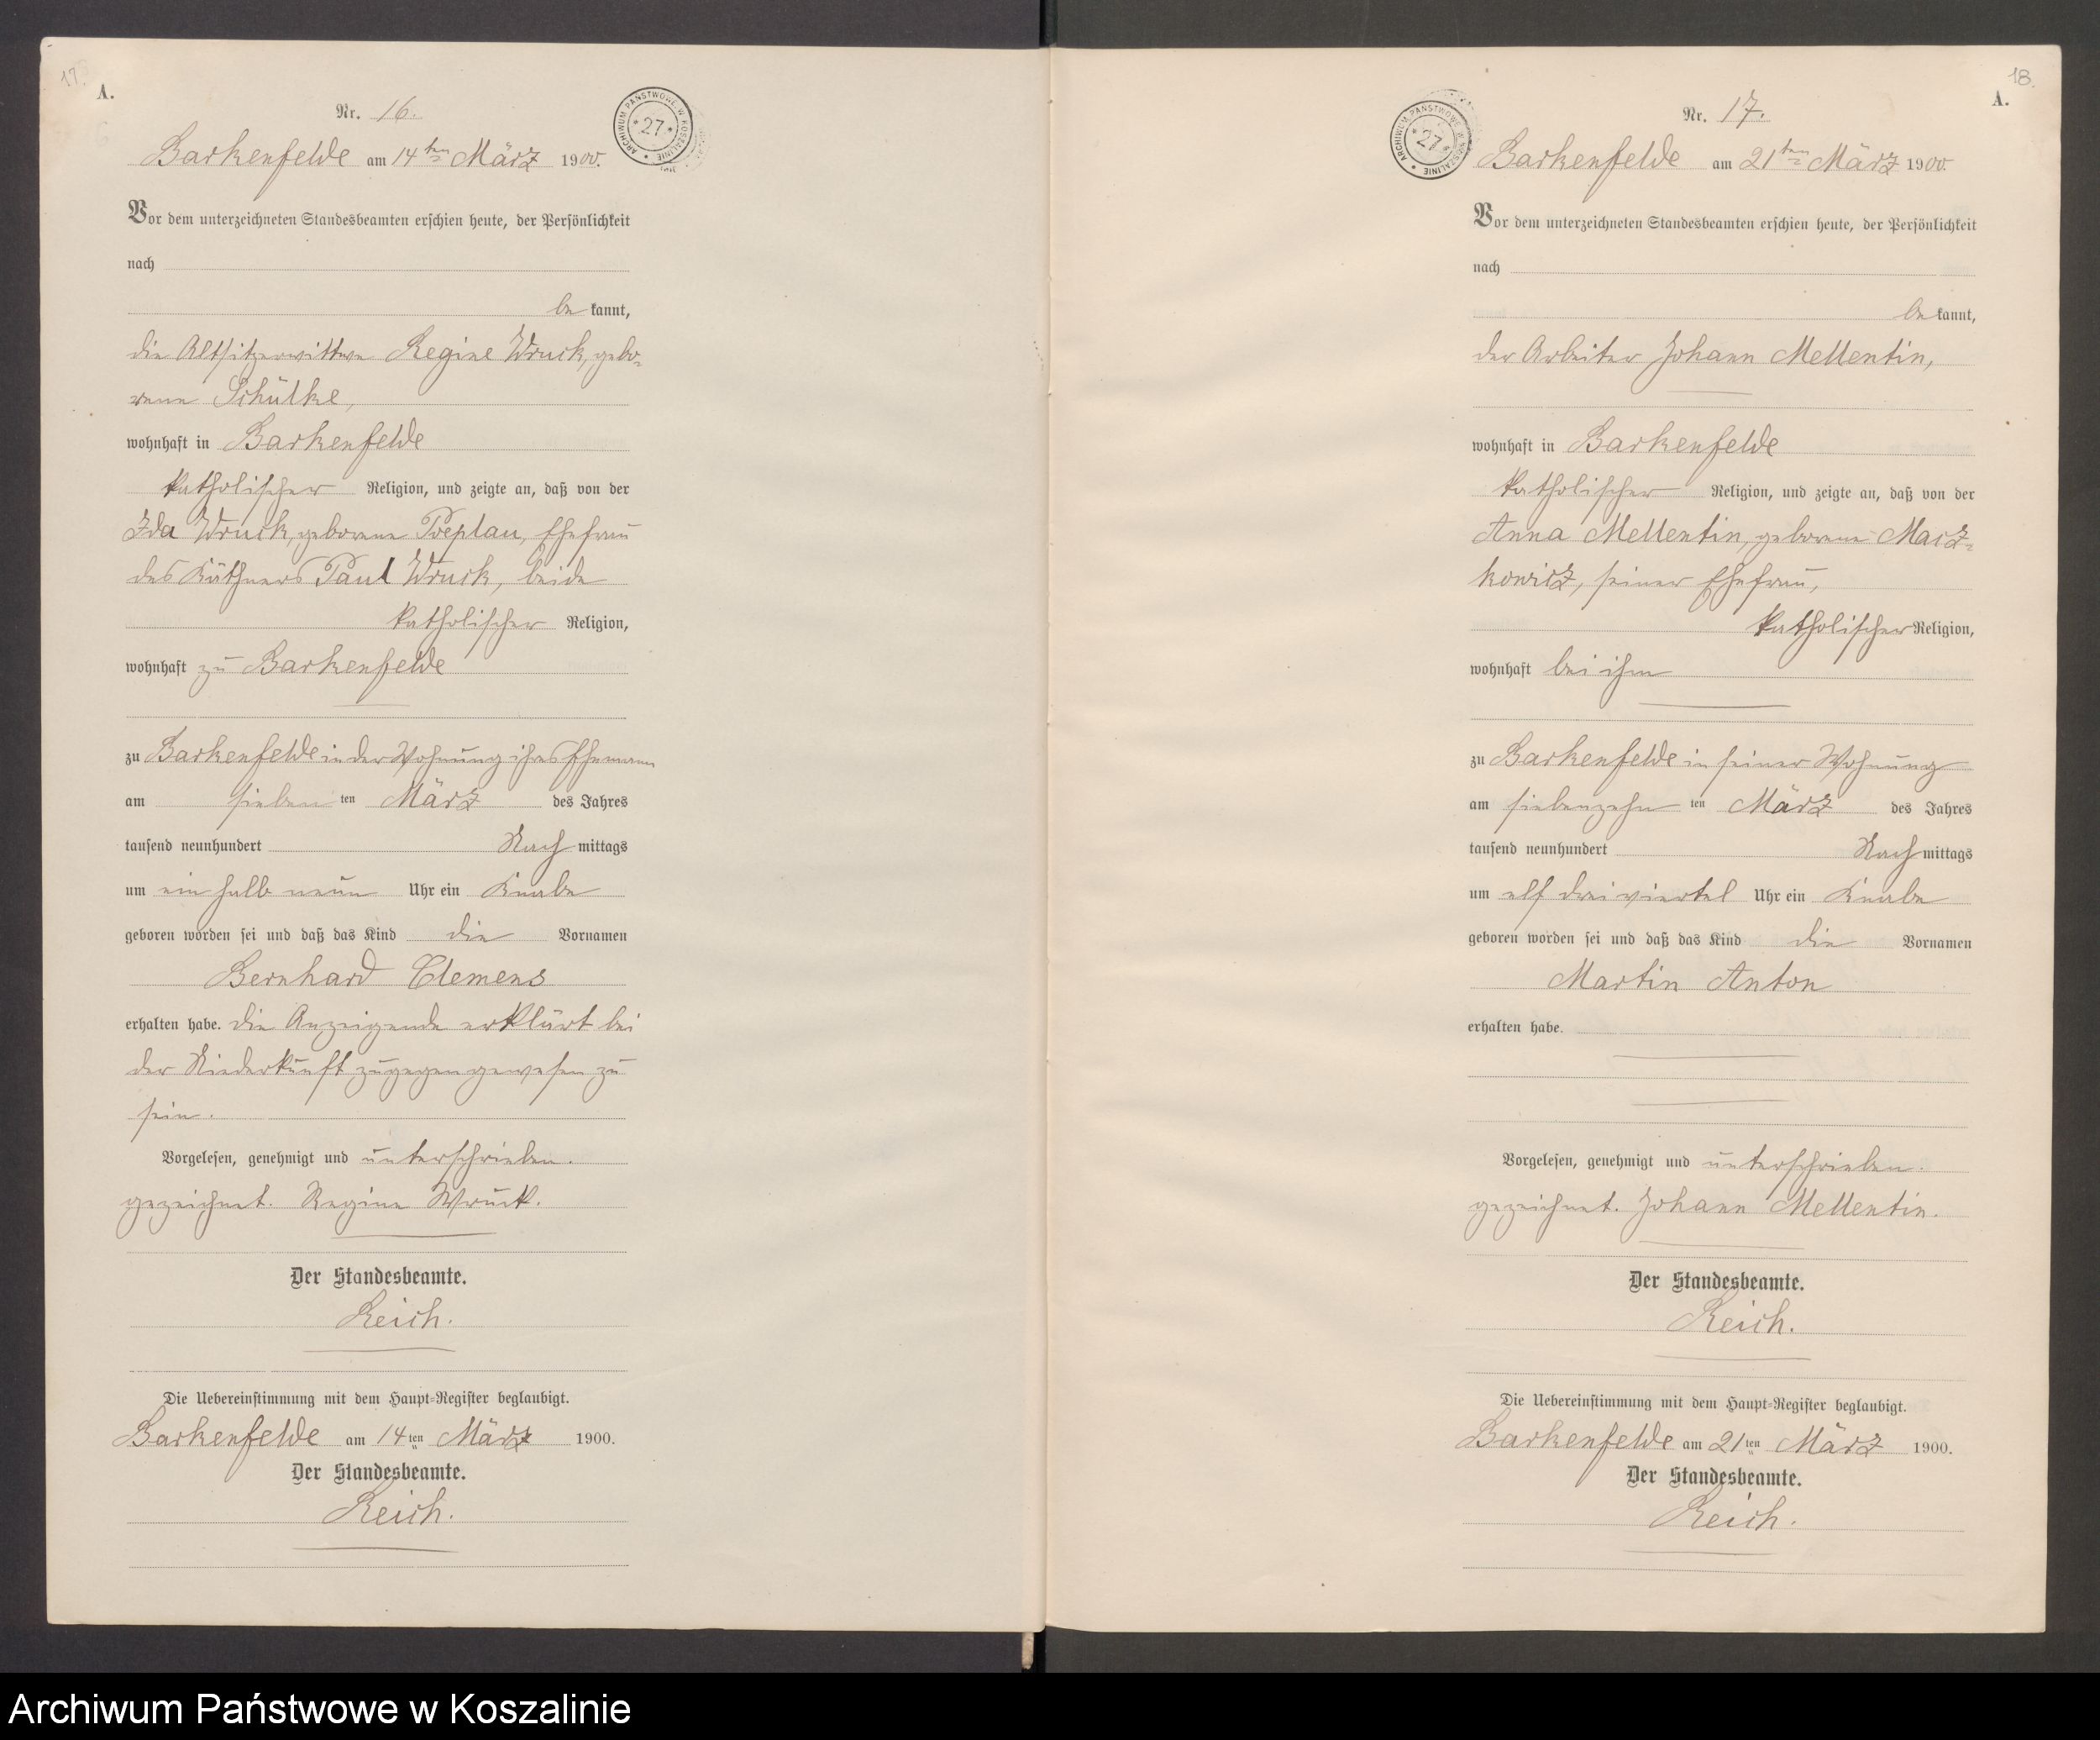 17.
A.
Nr. 16.
ARCHIWUM PAŃSTWOWE W KOSZALINIE * 27 *
Barkenfelde am 14ten März 1900.
Vor dem unterzeichneten Standesbeamten erschien heute, der Persönlichkeit
nach
be kannt,
die Altsitzerwittwe Regine Wruck, gebo-
rene Schülke,
wohnhaft in Barkenfelde
katholischer Religion, und zeigte an, daß von der
Ida Wruck, geborene Poeplau, Ehefrau
des Käthners Paul Wruck, beide
katholischer Religion,
wohnhaft zu Barkenfelde
zu Barkenfelde in der Wohnung ihres Ehemann
am sieben ten März des Jahres
tausend neunhundert Nach mittags
um ein halb neun Uhr ein Knabe
geboren worden sei und daß das Kind die Vornamen
Bernhard Clemens
erhalten habe. Die Anzeigende erklärt bei
der Niederkunft zugegen gewesen zu
sein.
Vorgelesen, genehmigt und unterschrieben.
gezeichnet. Regine Wruck.
Der Standesbeamte.
Reich.
Die Uebereinstimmung mit dem Haupt-Register beglaubigt.
Barkenfelde am 14ten März 1900.
Der Standesbeamte.
Reich.
18.
A.
Nr. 17.
ARCHIWUM PAŃSTWOWE W KOSZALINIE * 27 *
Barkenfelde am 21ten März 1900.
Vor dem unterzeichneten Standesbeamten erschien heute, der Persönlichkeit
nach
be kannt,
der Arbeiter Johann Mellentin,
wohnhaft in Barkenfelde
katholischer Religion, und zeigte an, daß von der
Anna Mellentin, geborene Marz-
kowicz, seiner Ehefrau,
katholischer Religion,
wohnhaft bei ihm
zu Barkenfelde in seiner Wohnung
am siebenzehn ten März des Jahres
tausend neunhundert Nach mittags
um elf dreiviertel Uhr ein Knabe
geboren worden sei und daß das Kind die Vornamen
Martin Anton
erhalten habe.
Vorgelesen, genehmigt und unterschrieben.
gezeichnet. Johann Mellentin.
Der Standesbeamte.
Reich.
Die Uebereinstimmung mit dem Haupt-Register beglaubigt.
Barkenfelde am 21ten März 1900.
Der Standesbeamte.
Reich.
Archiwum Państwowe w Koszalinie